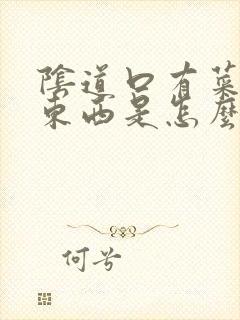 陰道口有菜
東西是怎麼
何兮